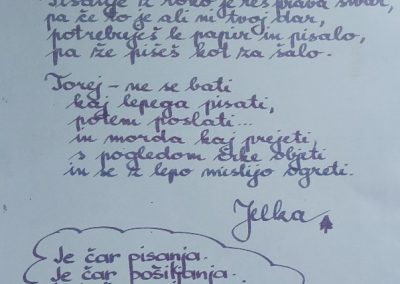 Pisanje z roko je res prava stvar,
pa če to je ali ni tvoj dar,
potrebuješ le papir in pisalo,
pa že pišeš kot za šalo.
Torej - ne se bati
kaj lepega pisati,
potem poslati...
in morda kaj prejeti,
s pogledom črke objeti
in se z lepo mislijo ogreti.
Jelka
Je čar pisanja.
Je čar pošiljanja.